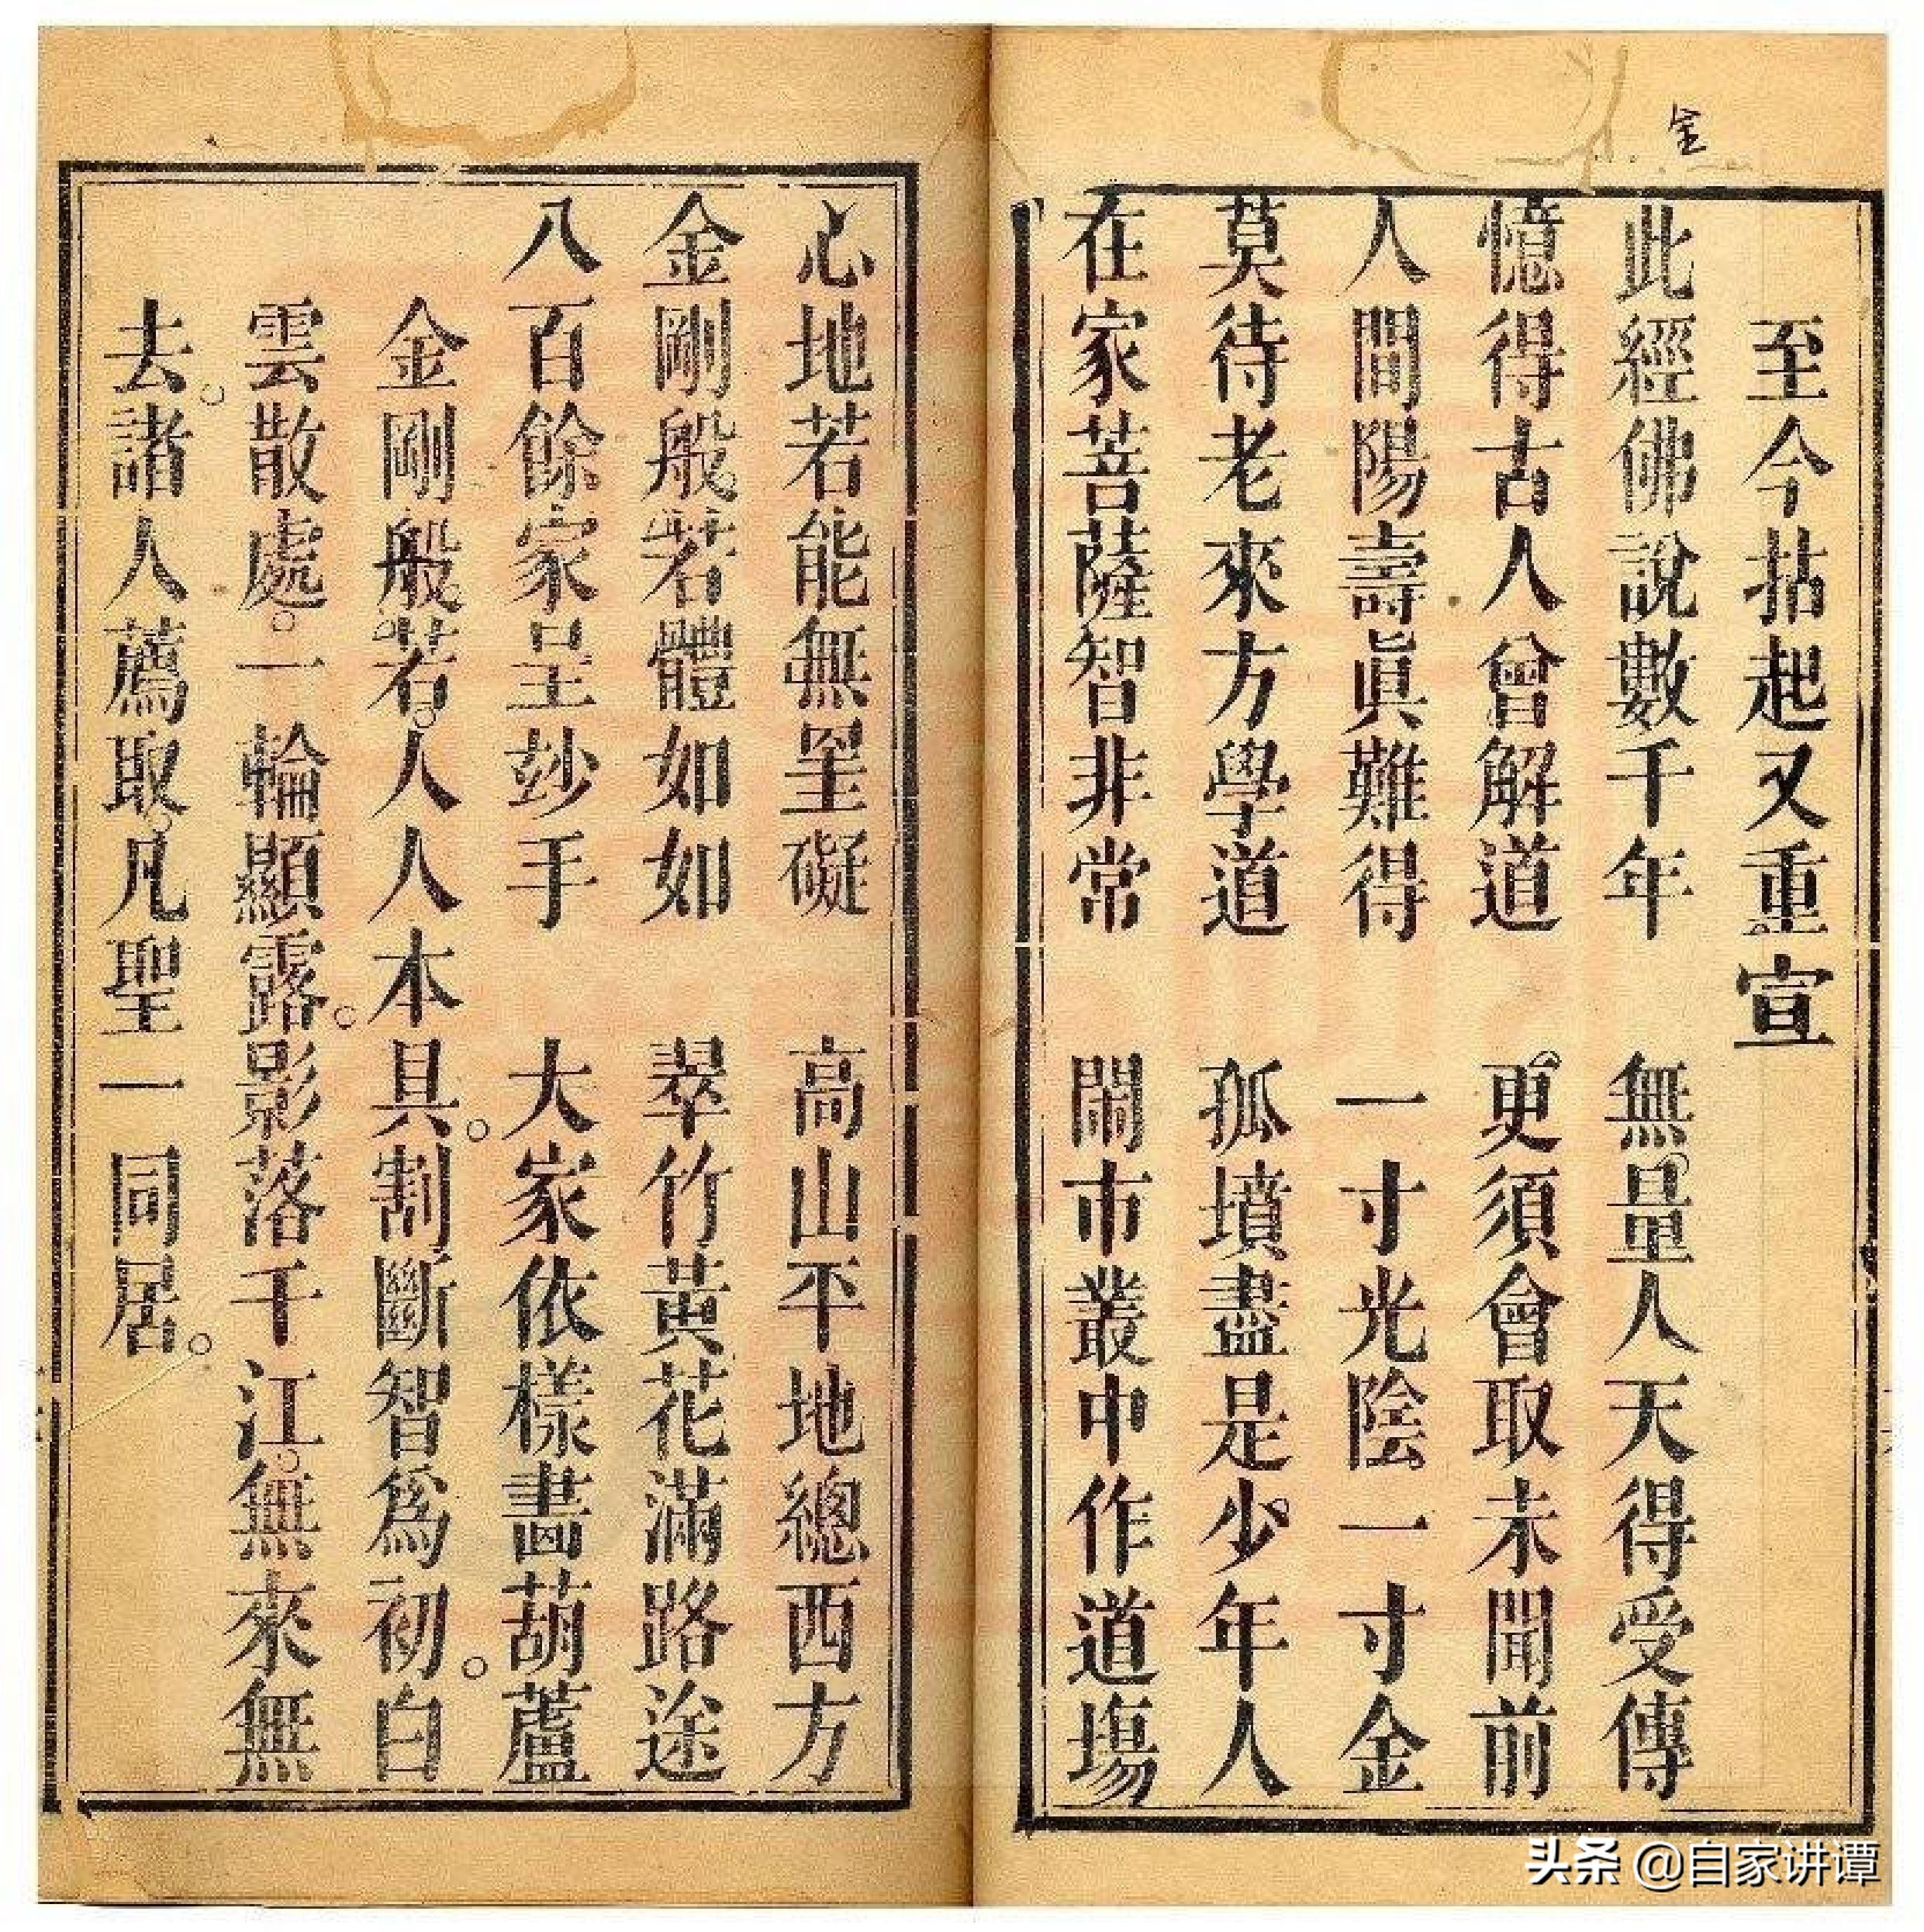 全
至今拈起又重宣
此經佛說數千年 無量人天得受傳
憶得古人曾解道 更須會取未聞前
人間陽壽眞難得 一寸光陰一寸金
莫待老來方學道 孤墳盡是少年人
在家菩薩智非常 鬧市叢中作道場
心地若能無罣礙 高山平地總西方
金剛般若體如如 翠竹黃花滿路途
八百餘家呈玅手 大家依樣畵葫蘆
金剛般若。人人本具。割斷智爲初。白
雲散處。一輪顯露。影落千江。無來無
去。諸人薦取。凡聖一同居。
头条 @自家讲谭